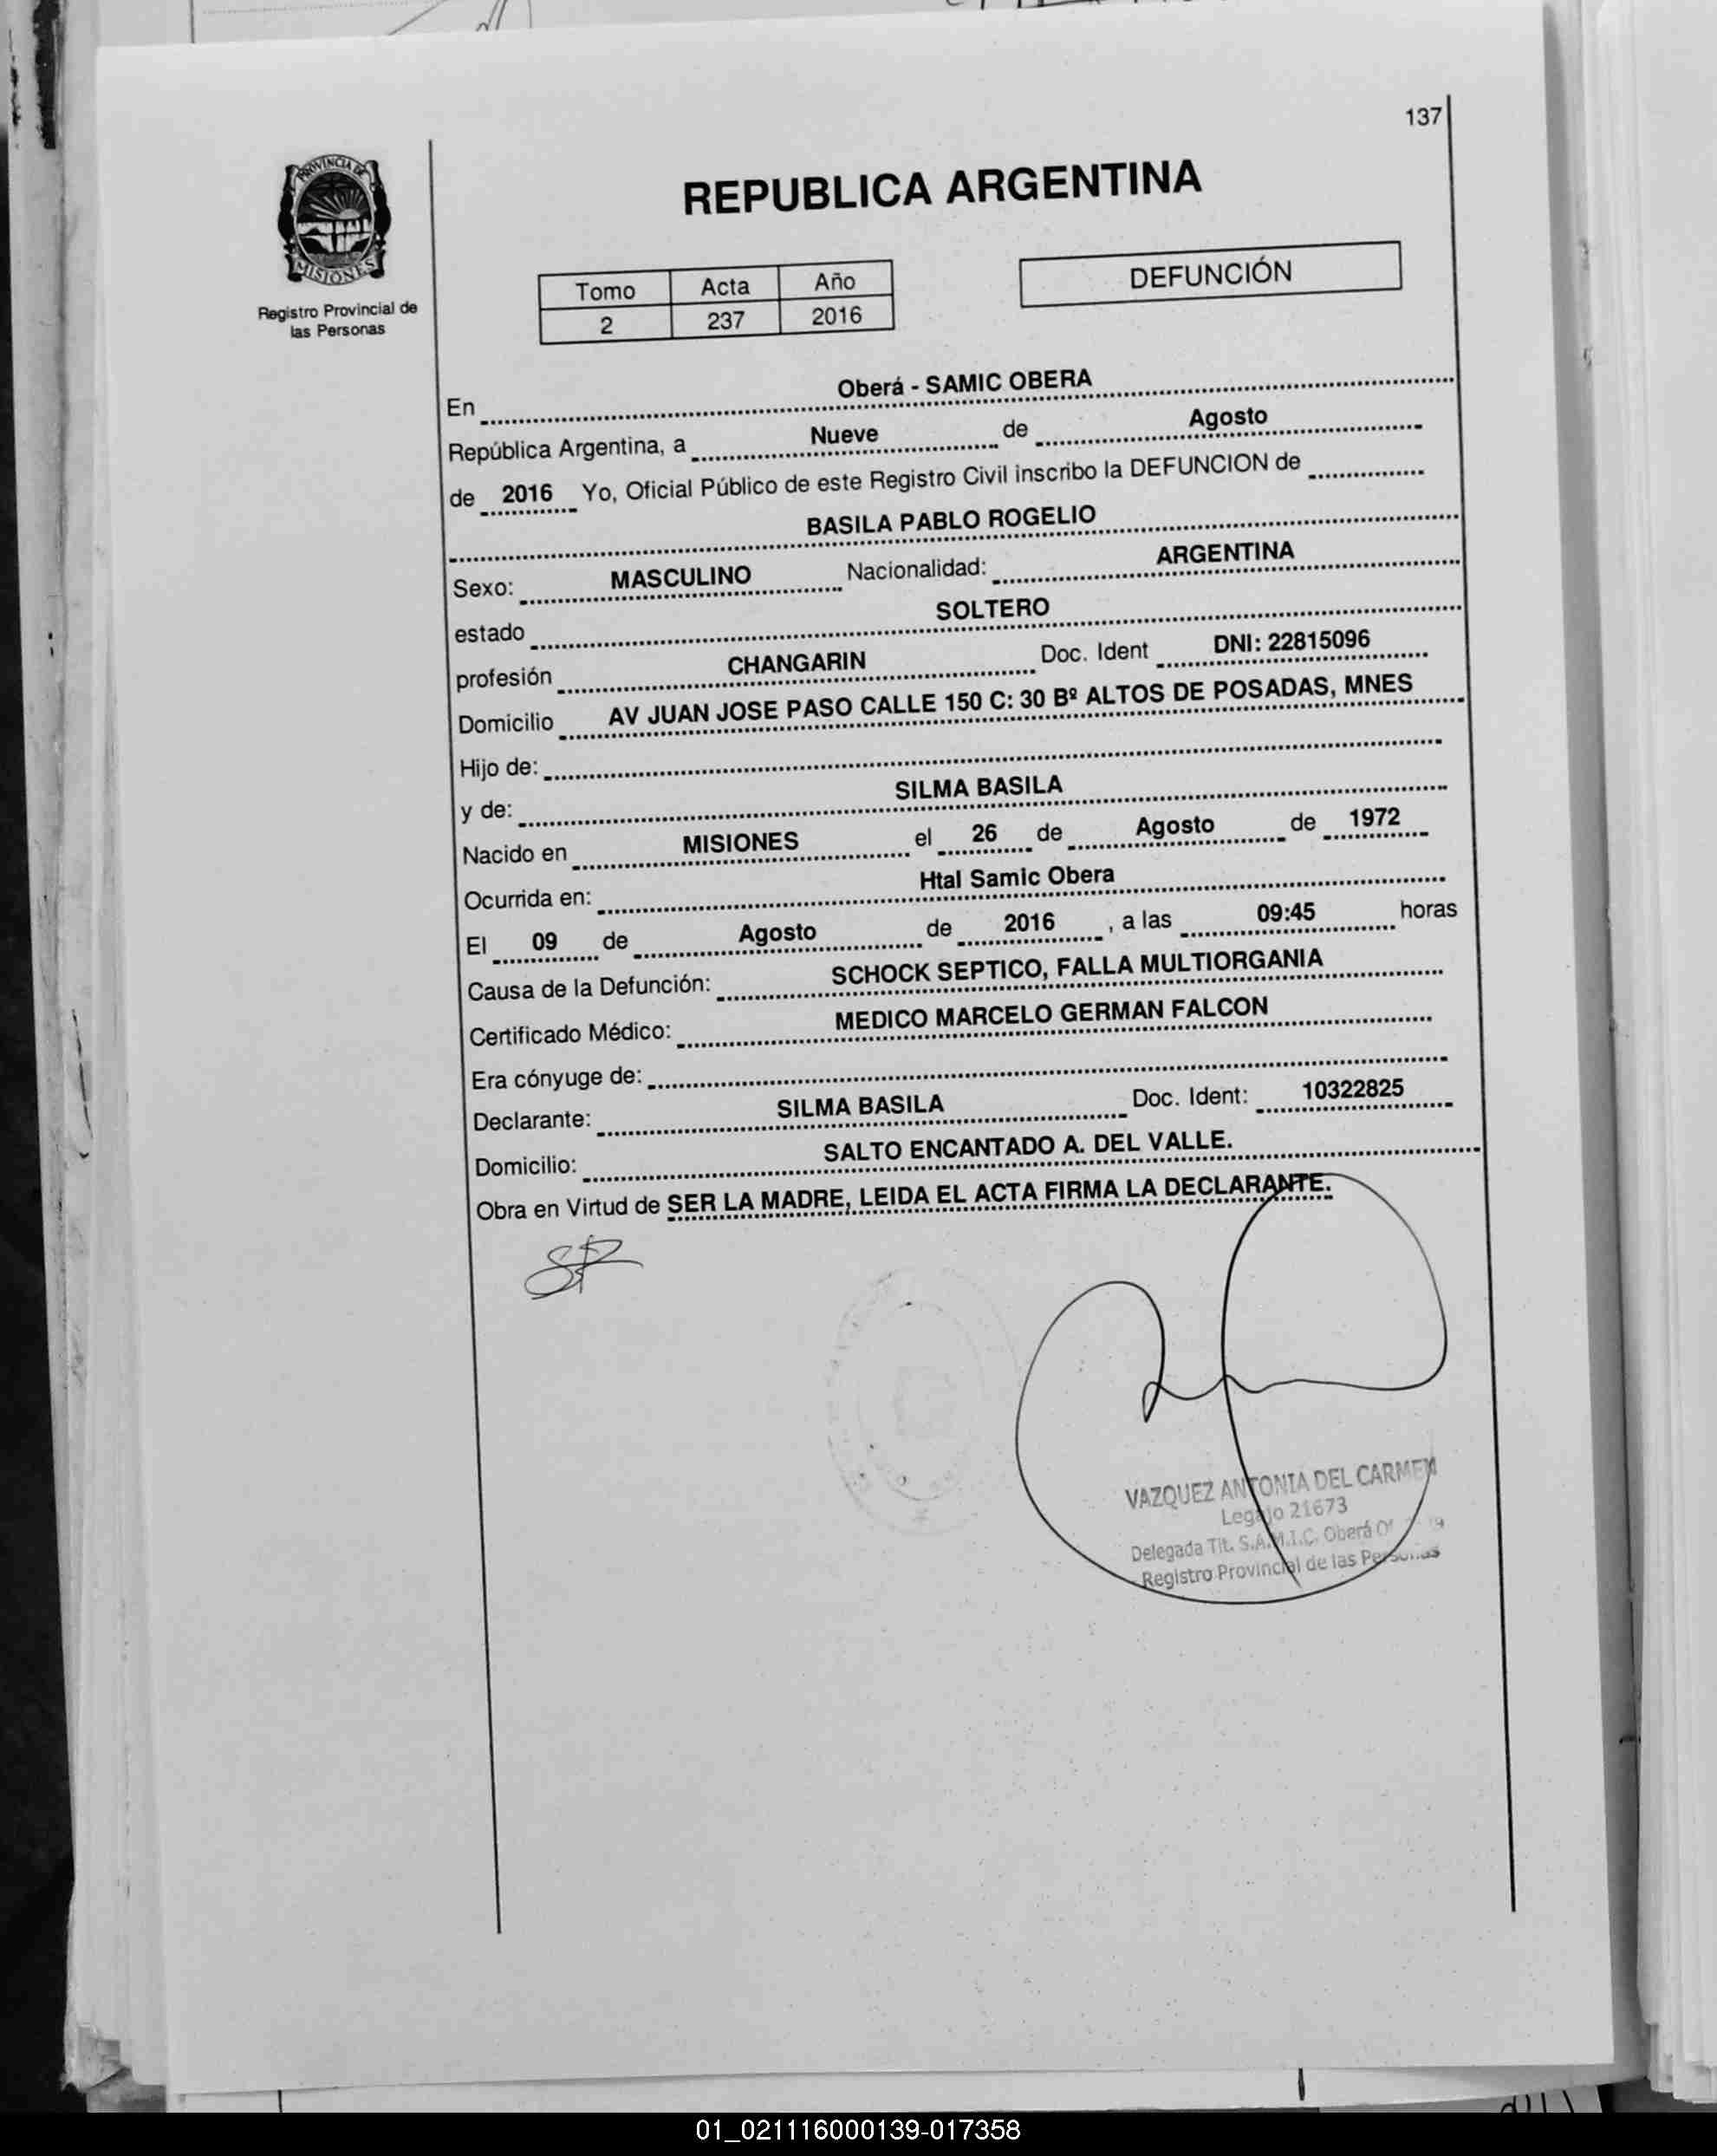 137
PROVINCIA DE
MISIONES
Registro Provincial de
las Personas
REPUBLICA ARGENTINA
Tomo Acta Año
2 237 2016
DEFUNCIÓN
En Oberá - SAMIC OBERA
República Argentina, a Nueve de Agosto
de 2016 Yo, Oficial Público de este Registro Civil inscribo la DEFUNCION de
BASILA PABLO ROGELIO
Sexo: MASCULINO Nacionalidad: ARGENTINA
estado SOLTERO
profesión CHANGARIN Doc. Ident DNI: 22815096
Domicilio AV JUAN JOSE PASO CALLE 150 C: 30 Bº ALTOS DE POSADAS, MNES
Hijo de:
y de: SILMA BASILA
Nacido en MISIONES el 26 de Agosto de 1972
Ocurrida en: Htal Samic Obera
El 09 de Agosto de 2016 , a las 09:45 horas
Causa de la Defunción: SCHOCK SEPTICO, FALLA MULTIORGANIA
Certificado Médico: MEDICO MARCELO GERMAN FALCON
Era cónyuge de:
Declarante: SILMA BASILA Doc. Ident: 10322825
Domicilio: SALTO ENCANTADO A. DEL VALLE.
Obra en Virtud de SER LA MADRE, LEIDA EL ACTA FIRMA LA DECLARANTE.
VAZQUEZ ANTONIA DEL CARMEN
Legajo 21673
Delegada Tit. S.A.M.I.C. Oberá
Registro Provincial de las Personas
01_021116000139-017358